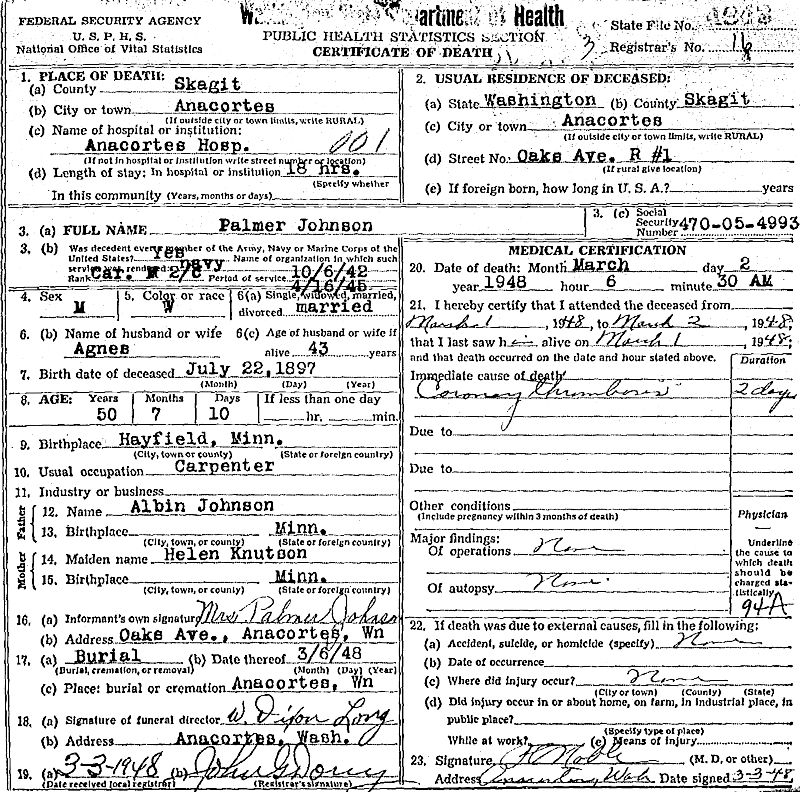 FEDERAL SECURITY AGENCY
U. S. P. H. S.
National Office of Vital Statistics
Department of Health
PUBLIC HEALTH STATISTICS SECTION
CERTIFICATE OF DEATH
3
State File No.
Registrar's No. 16
1. PLACE OF DEATH:
(a) County Skagit
(b) City or town Anacortes
(If outside city or town limits, write RURAL)
(c) Name of hospital or institution:
Anacortes Hosp. 001
(If not in hospital or institution write street number or location)
(d) Length of stay: In hospital or institution 18 hrs.
(Specify whether
In this community (Years, months or days)
2. USUAL RESIDENCE OF DECEASED:
(a) State Washington (b) County Skagit
(c) City or town Anacortes
(If outside city or town limits, write RURAL)
(d) Street No. Oaks Ave. R #1
(If rural give location)
(e) If foreign born, how long in U. S. A.? years
3. (a) FULL NAME Palmer Johnson
3. (c) Social Security Number 470-05-4993
3. (b) Was decedent ever member of the Army, Navy or Marine Corps of the
United States? Yes Name of organization in which such
service was rendered: Navy
Rank Car. M 2/C Period of service 10/6/42
4/16/45
4. Sex M
5. Color or race W
6(a) Single, widowed, married, divorced married
6. (b) Name of husband or wife Agnes
6(c) Age of husband or wife if alive 43 years
7. Birth date of deceased July 22, 1897
(Month) (Day) (Year)
8. AGE: Years Months Days If less than one day
50 7 10 hr. min.
9. Birthplace Hayfield, Minn.
(City, town or county) (State or foreign country)
10. Usual occupation Carpenter
11. Industry or business
Father
12. Name Albin Johnson
13. Birthplace Minn.
(City, town, or county) (State or foreign country)
Mother
14. Maiden name Helen Knutson
15. Birthplace Minn.
(City, town, or county) (State or foreign country)
16. (a) Informant's own signature Mrs Palmer Johnson
(b) Address Oaks Ave., Anacortes, Wn
17. (a) Burial (b) Date thereof 3/6/48
(Burial, cremation, or removal) (Month) (Day) (Year)
(c) Place: burial or cremation Anacortes, Wn
18. (a) Signature of funeral director W. Dixon Long
(b) Address Anacortes, Wash.
19. (a) 3-3-1948 (b)
(Date received local registrar) (Registrar's signature)
MEDICAL CERTIFICATION
20. Date of death: Month March day 2
year 1948 hour 6 minute 30 AM
21. I hereby certify that I attended the deceased from
March 1, 1948, to March 2, 1948;
that I last saw him alive on March 1 1948;
and that death occurred on the date and hour stated above.
Duration
Immediate cause of death
Coronary thrombosis 2 days
Due to
Due to
Other conditions
(Include pregnancy within 3 months of death)
Major findings:
Of operations None
Of autopsy None
Physician
Underline
the cause to
which death
should be
charged sta-
tistically
94A
22. If death was due to external causes, fill in the following:
(a) Accident, suicide, or homicide (specify) None
(b) Date of occurrence
(c) Where did injury occur? None
(City or town) (County) (State)
(d) Did injury occur in or about home, on farm, in industrial place, in
public place?
(Specify type of place)
While at work? (e) Means of injury
23. Signature Noble (M. D. or other)
Address Anacortes, Wash Date signed 3-3-48